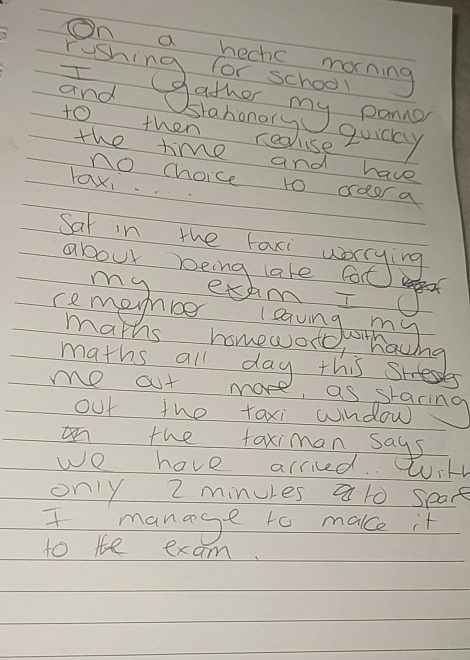 On a hectic morning
rushing for school
I gather my panner
and stationary quickly
to then realise
the time and have
no choice to order a
taxi.....
Sat in the taxi worrying
about being late for
my exam I
remember leaving my
maths homework, with having
maths all day this stresses
me out more, as staring
out the taxi window
the taximan says
we have arrived.. with
only 2 minutes to spare
I manage to make it
to the exam.